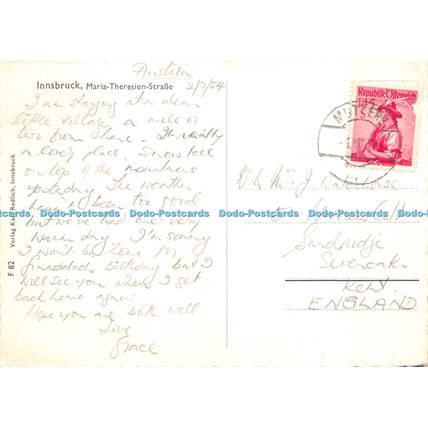 Austria
Innsbruck, Maria-Theresien-Straße
2/7/54.
I am staying at a dear
little village a mile or
two from there. It really
a lovely place. Snow fell
on top of the mountains
yesterday. The weather
been too good
but we've had one very
warm day. I'm sorry
I won't be home for
granddads birthday but I
will see you when I get
back home again.
Hope you are both well
Love
Grace
F 82 Verlag Karl Redlich, Innsbruck
Republik Österreich
1.45
MUTTERS
& Mr J
Sandridge
Kent
ENGLAND
Dodo-Postcards Dodo-Postcards Dodo-Postcards Dodo-Postcards Dodo-Postcards Dodo-Postcards